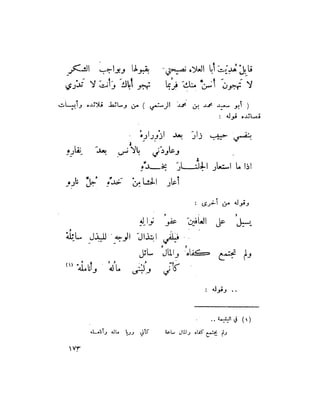 قابل هُديت أبا العلاء نصيحتي بقبولها وبواجب الشكر
لا تهجونّ أسنّ منك فربما تهجو أباك وأنت لا تدري
( أبو سعيد محمد بن محمد الرستمي ) من وسائط قلائده وأبيات
قصائده قوله :
بنفسي حبيب زار بعد ازوراره
وعاودني بالأنس بعد نفاره
اذا ما استعار الجلنار بخده
أعار الحشا من خده جل ناره
وقوله من أخرى :
يسيل على العافين عفو نواله
فيلقى ابتذال الوجه للبذل سائله
ولم تجتمع كفاه والمال سائل
كأني ولبنى ماله وأنامله (١)
.. وقوله :
(١) في اليتيمة ..
ولم يجتمع كفاه والمال ساعة كأني وريا ماله وأنامله
١٧٣